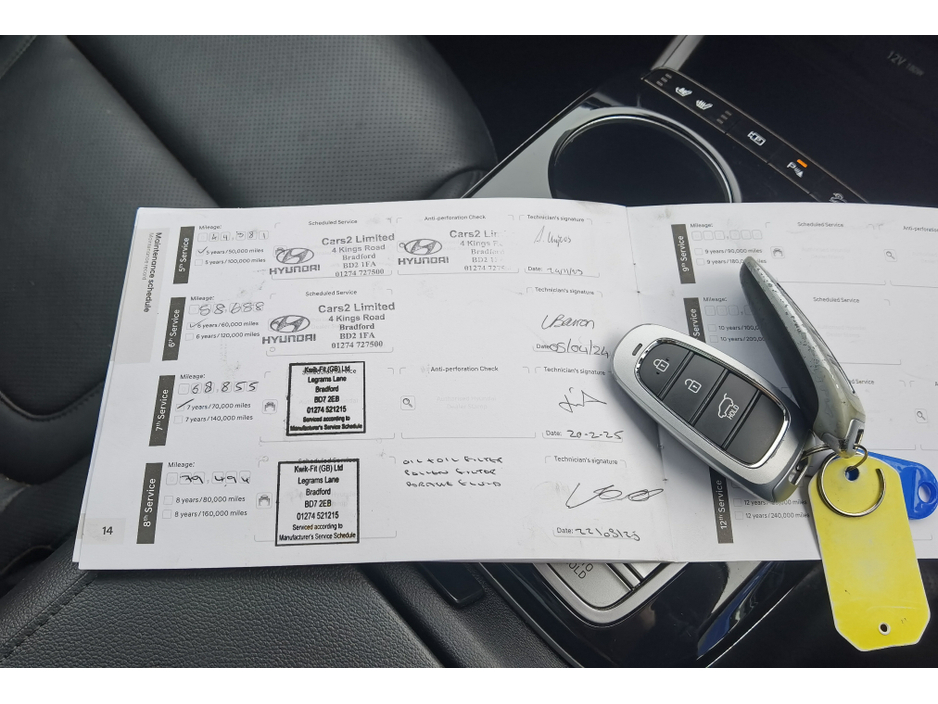 12V 180W
Maintenance schedule
5th Service
Mileage:
44,581
5 years/50,000 miles
5 years/100,000 miles
Scheduled Service
HYUNDAI
Cars2 Limited
4 Kings Road
Bradford
BD2 1FA
01274 727500
Anti-perforation Check
HYUNDAI
4 Kings
Bradford
BD2
Technician's signature
Date:
6th Service
Mileage:
58688
6 years/60,000 miles
6 years/120,000 miles
Scheduled Service
HYUNDAI
Cars2 Limited
4 Kings Road
Bradford
BD2 1FA
01274 727500
Technician's signature
Date: 05/04/24
7th Service
Mileage:
68855
7 years/70,000 miles
7 years/140,000 miles
Kwik-Fit (GB) Ltd
Legrams Lane
Bradford
BD7 2EB
01274 521215
Serviced according to
Manufacturer's Service Schedule
Anti-perforation Check
Technician's signature
Date: 20-2-25
8th Service
Mileage:
79,494
8 years/80,000 miles
8 years/160,000 miles
Scheduled Service
Kwik-Fit (GB) Ltd
Legrams Lane
Bradford
BD7 2EB
01274 521215
Serviced according to
Manufacturer's Service Schedule
OIL & OIL FILTER
POLLEN FILTER
FLUID
Technician's signature
Date: 22/08/25
14
9th Service
Mileage:
9 years/90,000 miles
9 years/180,
Scheduled Service
Anti-perforation
10 years/100
10 years/200,
12th Service
12 years/240,000 miles
HOLD